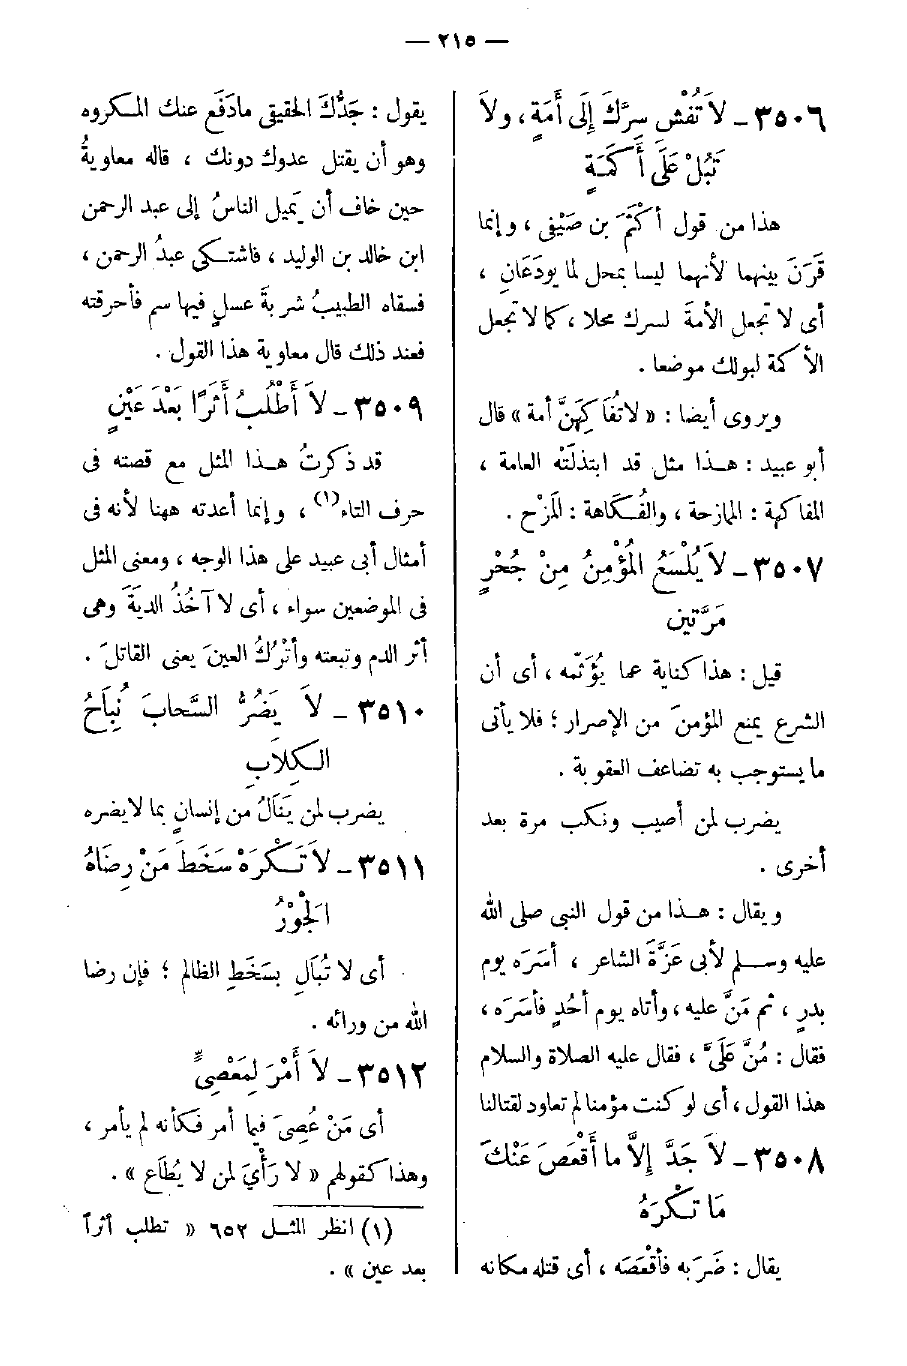 — ٢١٥ —
٣٥٠٦ - لاَ تُفْشِ سِرَّكَ إِلَى أَمَةٍ ، ولاَ
تَبُلْ عَلَى أَكَمَةٍ
هذا من قول أكْثَمَ بن صَيْفى ، وإنما
قَرَنَ بينهما لأنهما ليسا بمحل لما يودَعَانِ ،
أى لا تجعل الأمةَ لسرك محلا ، كما لا تجعل
الأكمة لبولك موضعا .
ويروى أيضا : « لاتُفَاكِهَنَّ أمة » قال
أبو عبيد : هـذا مثل قد ابتذلَتْه العامة ،
المفاكهة : الممازحة ، والفُكَاهة : المَزْح .
٣٥٠٧ - لاَ يُلْسَعُ المُؤْمِنُ مِنْ جُحْرٍ
مَرَّتَيْنِ
قيل : هذا كناية عما يُؤثمه ، أى أن
الشرع يمنع المؤمنَ من الإصرار ؛ فلا يأتى
ما يستوجب به تضاعف العقوبة .
يضرب لمن أصيب ونكب مرة بعد
أخرى .
ويقال : هـذا من قول النبى صلى الله
عليه وسـلم لأبى عَزَّةَ الشاعر ، أسَرَه يوم
بدرٍ ، ثم مَنَّ عليه ، وأتاه يوم أحُدٍ فأسَرَه ،
فقال : مُنَّ عَلَىَّ ، فقال عليه الصلاة والسلام
هذا القول ، أى لو كنت مؤمنا لم تعاود لقتالنا
٣٥٠٨ - لاَ جَدَّ إِلاَّ ما أَقْعَصَ عَنْكَ
مَا تَكْرَهُ
يقال : ضَرَبه فأقْعَصَه ، أى قتله مكانه
يقول : جَدُّكَ الحقيقى مادَفَع عنك المكروه
وهو أن يقتل عدوك دونك ، قاله معاويةُ
حين خاف أن يَميل الناسُ إلى عبد الرحمن
ابن خالد بن الوليد ، فاشتكى عبدُ الرحمن ،
فسقاه الطبيبُ شربةَ عسلٍ فيها سم فأحرقته
فعند ذلك قال معاوية هذا القول .
٣٥٠٩ - لاَ أَطْلُبُ أَثَرًا بَعْدَ عَيْنٍ
قد ذكرتُ هـذا المثل مع قصته فى
حرف التاء(١) ، وإنما أعدته ههنا لأنه فى
أمثال أبى عبيد على هذا الوجه ، ومعنى المثل
فى الموضعين سواء ، أى لا آخُذُ الديَةَ وهى
أثر الدم وتبعته وأتْرُكُ العينَ يعنى القاتلَ .
٣٥١٠ - لاَ يَضُرُّ السَّحابَ نُبَاحُ
الـكِلاَبِ
يضرب لمن يَنَالُ من إنسانٍ بما لايضره
٣٥١١ - لاَ تَكْرَهْ سَخَطَ مَنْ رِضَاهُ
الجَوْرُ
أى لا تُبَالِ بسَخَطِ الظالم ؛ فإن رضا
الله من ورائه .
٣٥١٢ - لاَ أَمْرَ لِمَعْصِىٍّ
أى مَنْ عُصِىَ فيما أمر فكأنه لم يأمر ،
وهذا كقولهم « لا رَأْىَ لمن لا يُطَاع » .
(١) انظر المثـل ٦٥٢ « تطلب أثراً
بعد عين » .